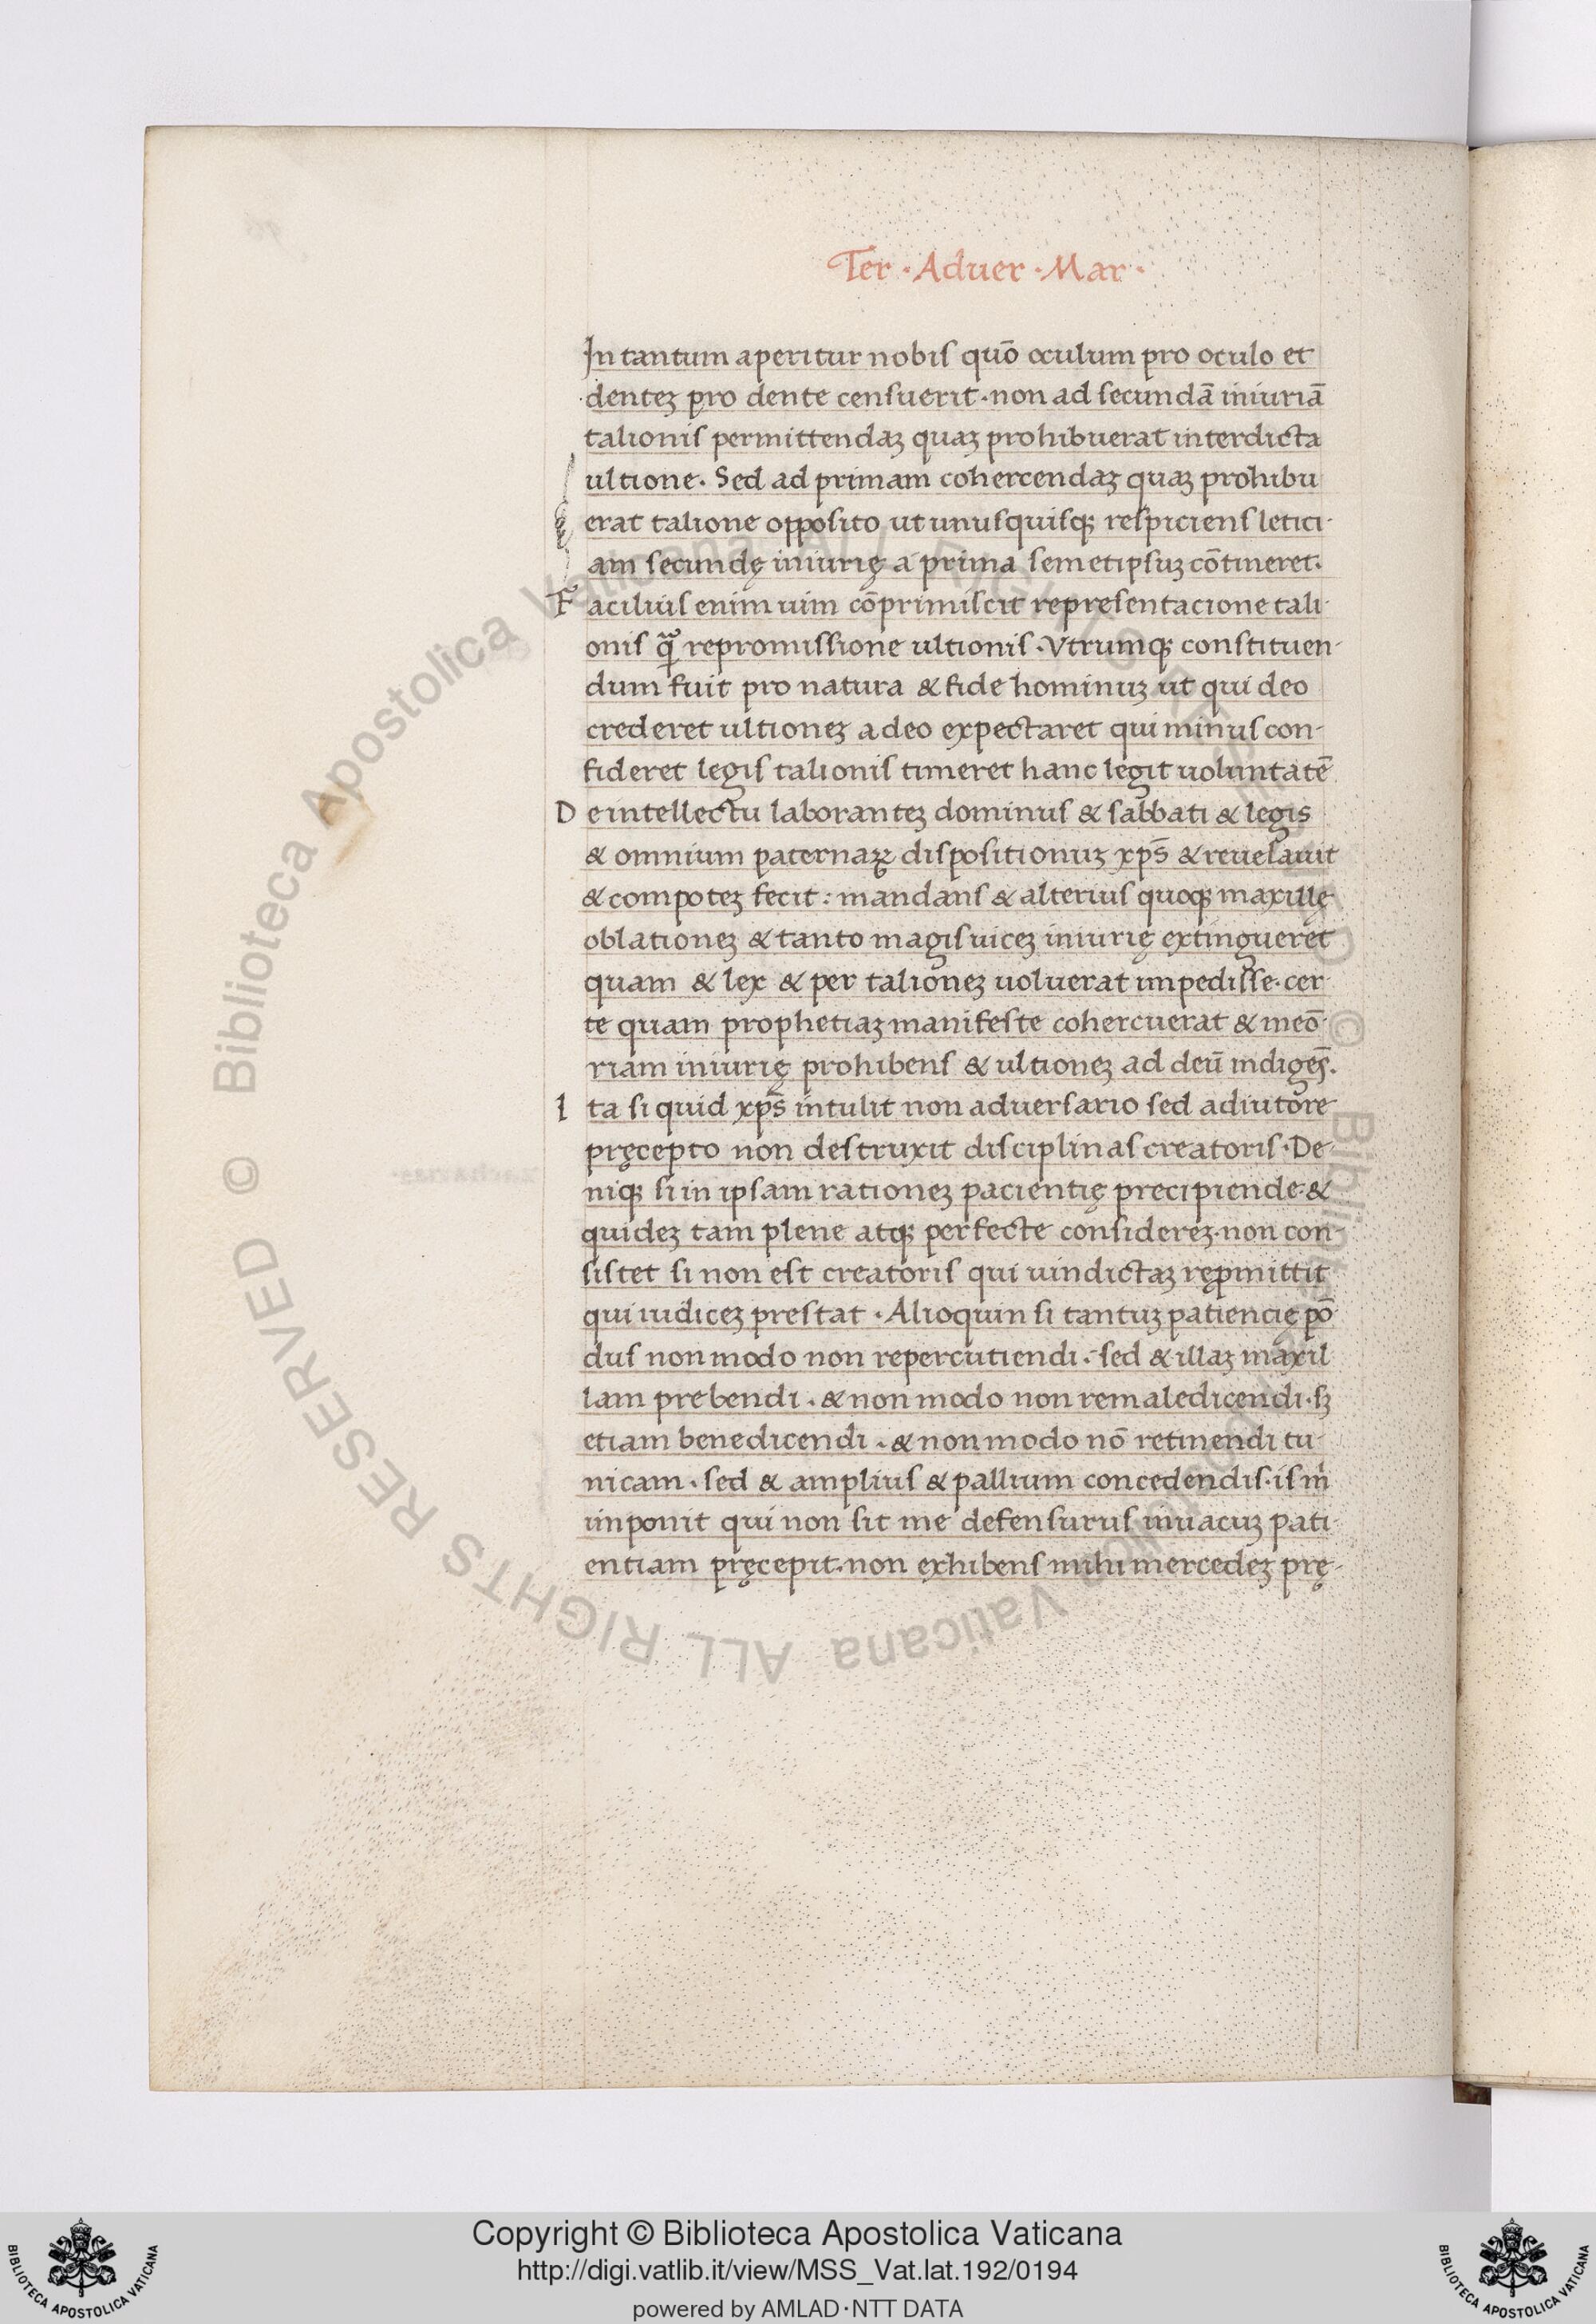 Ter · Aduer · Mar ·
In tantum aperitur nobis quō oculum pro oculo et
denteꝫ pro dente censuerit · non ad secundā iniuriā
talionis permittendaꝫ quaꝫ prohibuerat interdicta
ultione. Sed ad primam cohercendaꝫ quaꝫ prohibu
erat talione opposito ut unusquisqꝫ respiciens letici-
am secundę iniurię a prima semetipsuꝫ cōtineret.
Facilius enim uim cōprimiscit representacione tali-
onis quā repromissione ultionis · Vtrumqꝫ constituen-
dum fuit pro natura & fide hominuꝫ ut qui deo
crederet ultioneꝫ a deo expectaret qui minus con-
fideret legis talionis timeret hanc legit uoluntatē
De intellectu laboranteꝫ dominus & sabbati & legis
& omnium paternaꝝ dispositionuꝫ xp̄s & reuelauit
& compoteꝫ fecit : mandans & alterius quoqꝫ maxillę
oblationeꝫ & tanto magis uiceꝫ iniurię extingueret
quam & lex & per talioneꝫ uoluerat impedisse · cer
te quam prophetiaꝫ manifeste cohercuerat & meō-
riam iniurię prohibens & ultioneꝫ ad deū indigēs.
Ita si quid xp̄s intulit non aduersario sed adiutore
pręcepto non destruxit disciplinas creatoris · De-
niqꝫ si in ipsam rationeꝫ pacientię precipiende · &
quideꝫ tam plene atqꝫ perfecte considereꝫ · non con-
sistet si non est creatoris qui uindictaꝫ repromittit
qui iudiceꝫ prestat · Alioquin si tantuꝫ patiencię pō
dus non modo non repercutiendi · sed & illaꝫ maxil
lam prebendi · & non modo non remaledicendi · sꝫ
etiam benedicendi · & non modo nō retinendi tu-
nicam · sed & amplius & pallium concedendis · is m̄
imponit qui non sit me defensurus inuacuꝫ pati-
entiam pręcepit · non exhibens mihi mercedeꝫ prę-
© Biblioteca Apostolica Vaticana ALL RIGHTS RESERVED © Biblioteca Apostolica Vaticana ALL RIGHTS RESERVED
Copyright © Biblioteca Apostolica Vaticana
http://digi.vatlib.it/view/MSS_Vat.lat.192/0194
powered by AMLAD·NTT DATA
BIBLIOTECA APOSTOLICA VATICANA
BIBLIOTECA APOSTOLICA VATICANA